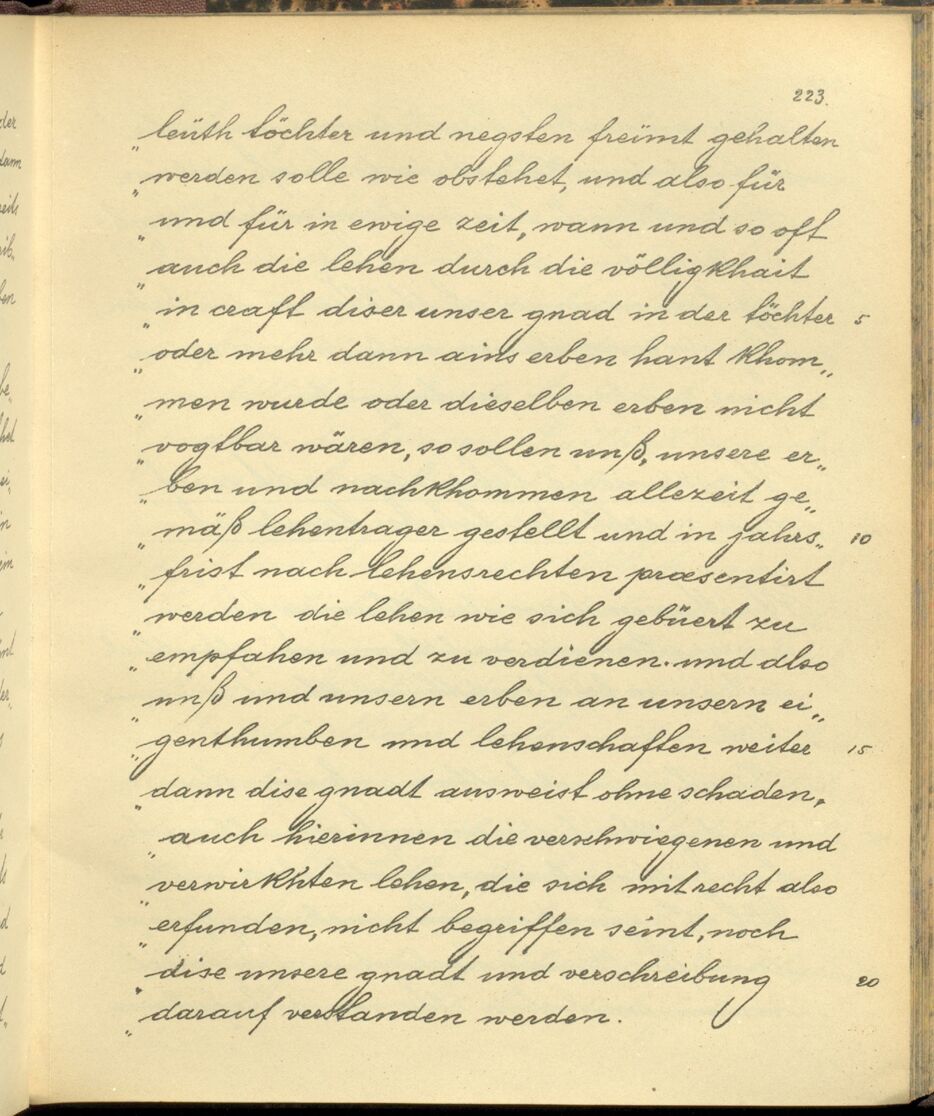 223.
„leüth töchter und negsten freümt gehalten
„werden solle wie obstehet, und also für
„und für in ewige zeit, wann und so oft
„auch die lehen durch die völligkhait
„in craft diser unser gnad in der töchter 5
„oder mehr dann ains erben hant khom„
„men wurde oder dieselben erben nicht
„vogtbar wären, so sollen unß, unsere er„
„ben und nachkhommen allezeit ge„
„mäß lehentrager gestellt und in jahrs„ 10
„frist nach lehensrechten præsentirt
„werden die lehen wie sich gebüert zu
„empfahen und zu verdienen. und also
„unß und unsern erben an unsern ei„
„genthumben und lehenschaften weiter 15
„dann dise gnadt ausweist ohne schaden,
„auch hierinnen die verschwiegenen und
„verwirkhten lehen, die sich mit recht also
„erfunden, nicht begriffen seint, noch
„dise unsere gnadt und verschreibung 20
„darauf verstanden werden.